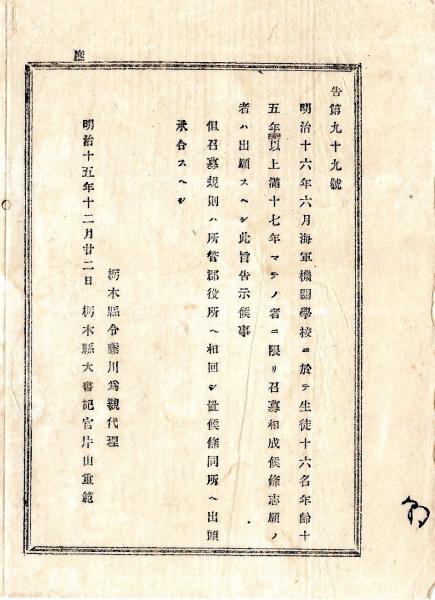 告第九十九號
明治十六年六月海軍機關學校ニ於テ生徒十六名年齡十
五年以上滿十七年マテノ者ニ限リ召募相成候條志願ノ
者ハ出願スヘシ此旨告示候事
但召募規則ハ所管郡役所ヘ相回シ置候條同所ヘ出頭
承合スヘシ
栃木縣令藤川爲親代理
明治十五年十二月廿二日 栃木縣大書記官片山重範